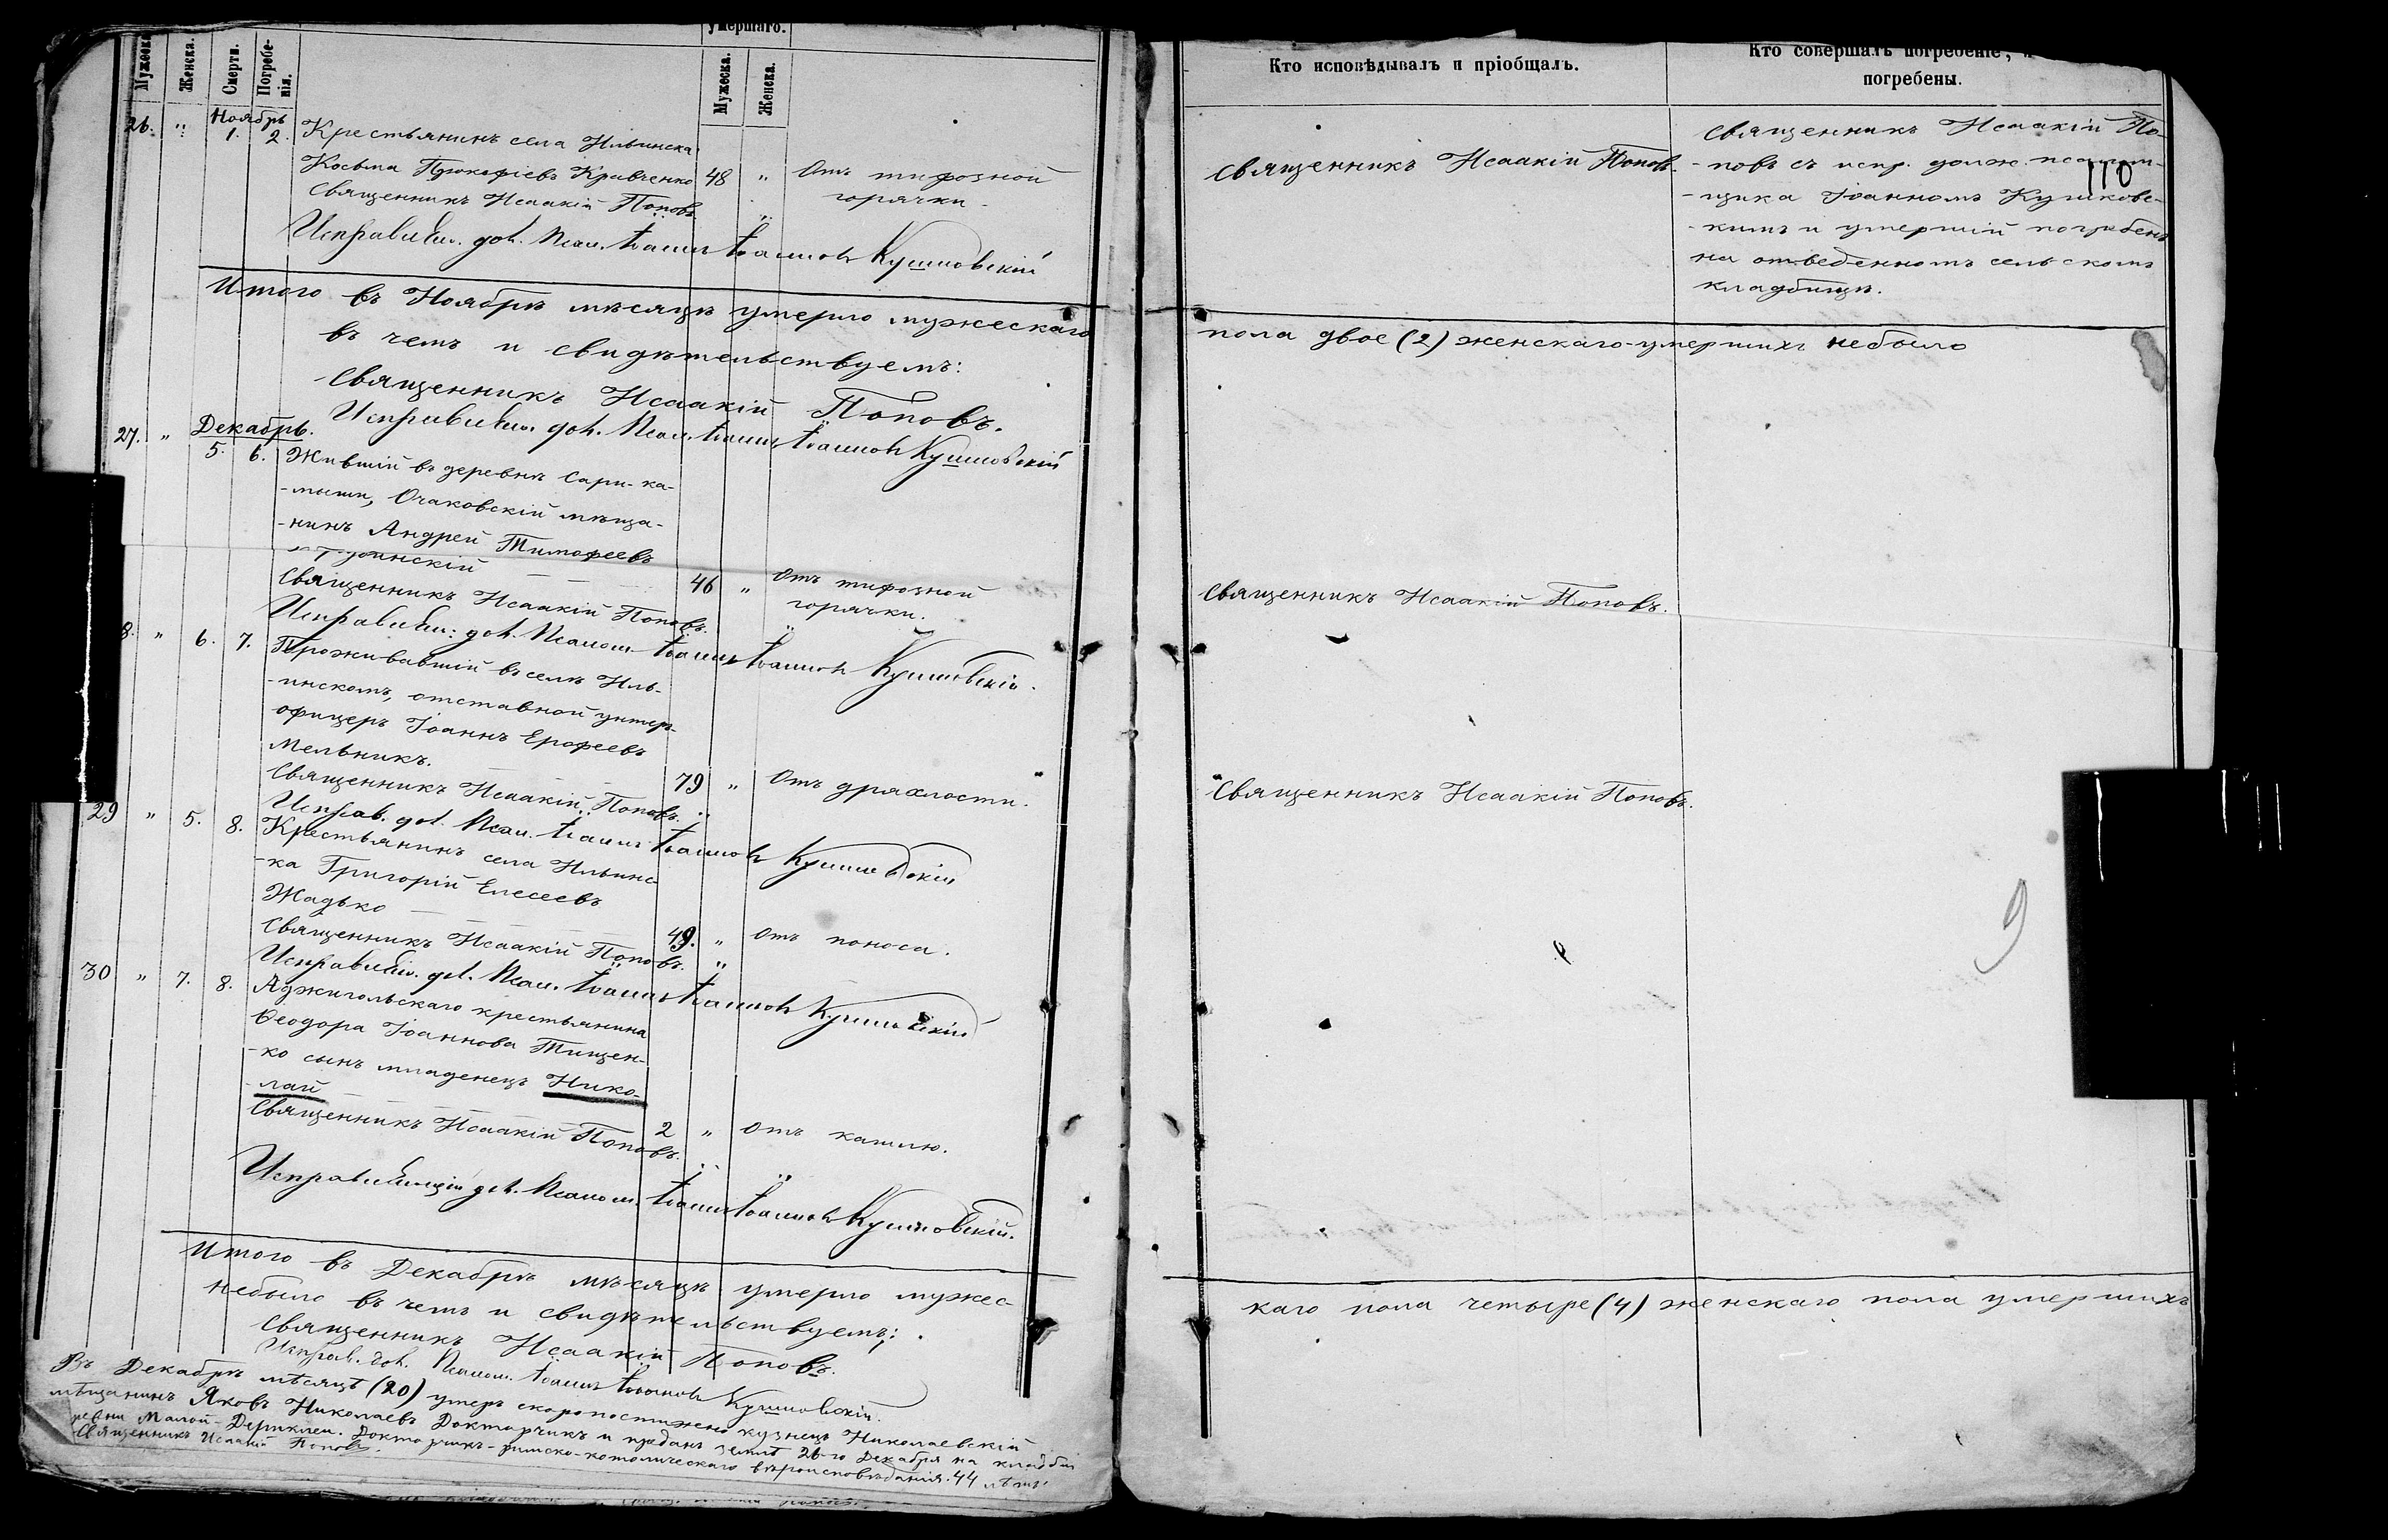 умершаго.
Мужеска.
Женска.
Смерти.
Погребе-
нія.
Мужеска.
Женска.
Ноябрь
26. " 1. 2. Крестьянинъ села Ильинска
Косьма Прокофіевъ Кравченко 48 " Отъ тифозной
горячки
Священникъ Исаакій Поповъ.
Исправляющ. дол. Псал. Іоаннъ Іоанновъ Кушковскій
Итого въ Ноябрѣ мѣсяцѣ умерло мужескаго
въ чемъ и свидѣтельствуемъ:
Священникъ Исаакій Поповъ.
Исправляющ. дол. Псал. Іоаннъ Іоанновъ Кушковскій
Декабрь.
27. " 5. 6. Жившій въ деревнѣ Сари-ка-
-мыши, Очаковскій мѣща-
-нинъ Андрей Тимофеевъ
46 " Отъ тифозной
горячки.
Священникъ Исаакій Поповъ.
Исправляющ: дол. Псалом. Іоаннъ Іоанновъ Кушковскій.
8. " 6. 7. Проживавшій въ селѣ Иль-
-инскомъ, отставной унтеръ-
офицеръ Іоаннъ Ерофеевъ
Мельникъ. 79 " Отъ дряхлости.
Священникъ Исаакій Поповъ.
Исправ. дол. Псал. Іоаннъ Іоанновъ Кушковскій
29 " 5. 8. Крестьянинъ села Ильинс-
-ка Григорій Елесеевъ
Жадько 49. " Отъ поноса.
Священникъ Исаакій Поповъ.
Исправляющ. дол. Псал. Іоаннъ Іоанновъ Кушковскій
30 " 7. 8. Аджигольскаго крестьянина
Ѳеодора Іоаннова Тищен-
-ко сынъ младенецъ Нико-
-лай 2 " Отъ кашлю.
Священникъ Исаакій Поповъ.
Исправляющій дол. Псалом. Іоаннъ Іоанновъ Кушковскій.
Итого въ Декабрѣ мѣсяцѣ умерло мужес-
небыло въ чемъ и свидѣтельствуемъ:
Священникъ Исаакій Поповъ.
Исправ. дол. Псалом. Іоаннъ Іоанновъ Кушковскій.
Въ Декабрѣ мѣсяцѣ (20) умеръ скоропостижно кузнецъ Николаевскій
мѣщанинъ Яковъ Николаевъ Докторчикъ и преданъ землѣ 26-го Декабря на кладбищ
ревни Малой-Дериклеи. Докторчикъ-римско-католическаго вѣроисповѣданія. 44 лѣтъ.
Священникъ Исаакій Поповъ.
Кто исповѣдывалъ и пріобщалъ.
Кто совершалъ погребеніе, и
погребены.
Священникъ Исаакій Поповъ.
Священникъ Исаакій По-
-повъ съ испр. долж. псалом-
-щика Іоанномъ Кушковс-
-кимъ и умершій погребенъ
на отведенномъ сельскомъ
кладбищѣ.
110
пола двое (2) женскаго-умершихъ небыло
Священникъ Исаакій Поповъ.
Священникъ Исаакій Поповъ.
9
каго пола четыре (4) женскаго пола умершихъ